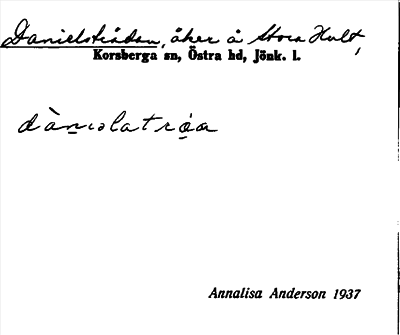 Danielstrådan, åker å Stora Hult,
Korsberga sn, Östra hd, Jönk. l.
Annalisa Anderson 1937